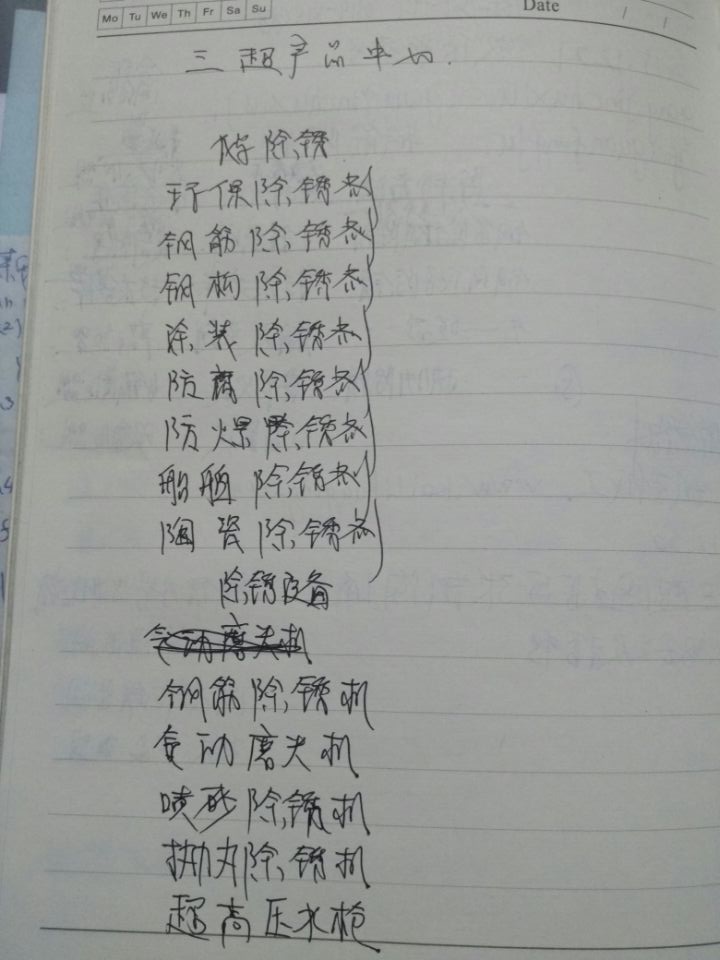 Mo Tu We Th Fr Sa Su
Date / /
三超产品中心
化学除锈
环保除锈剂
钢筋除锈剂
钢构除锈剂
涂装除锈剂
防腐除锈剂
防爆除锈剂
船舶除锈剂
陶瓷除锈剂
除锈设备
钢筋除锈机
气动磨光机
喷砂除锈机
抛丸除锈机
超高压水枪